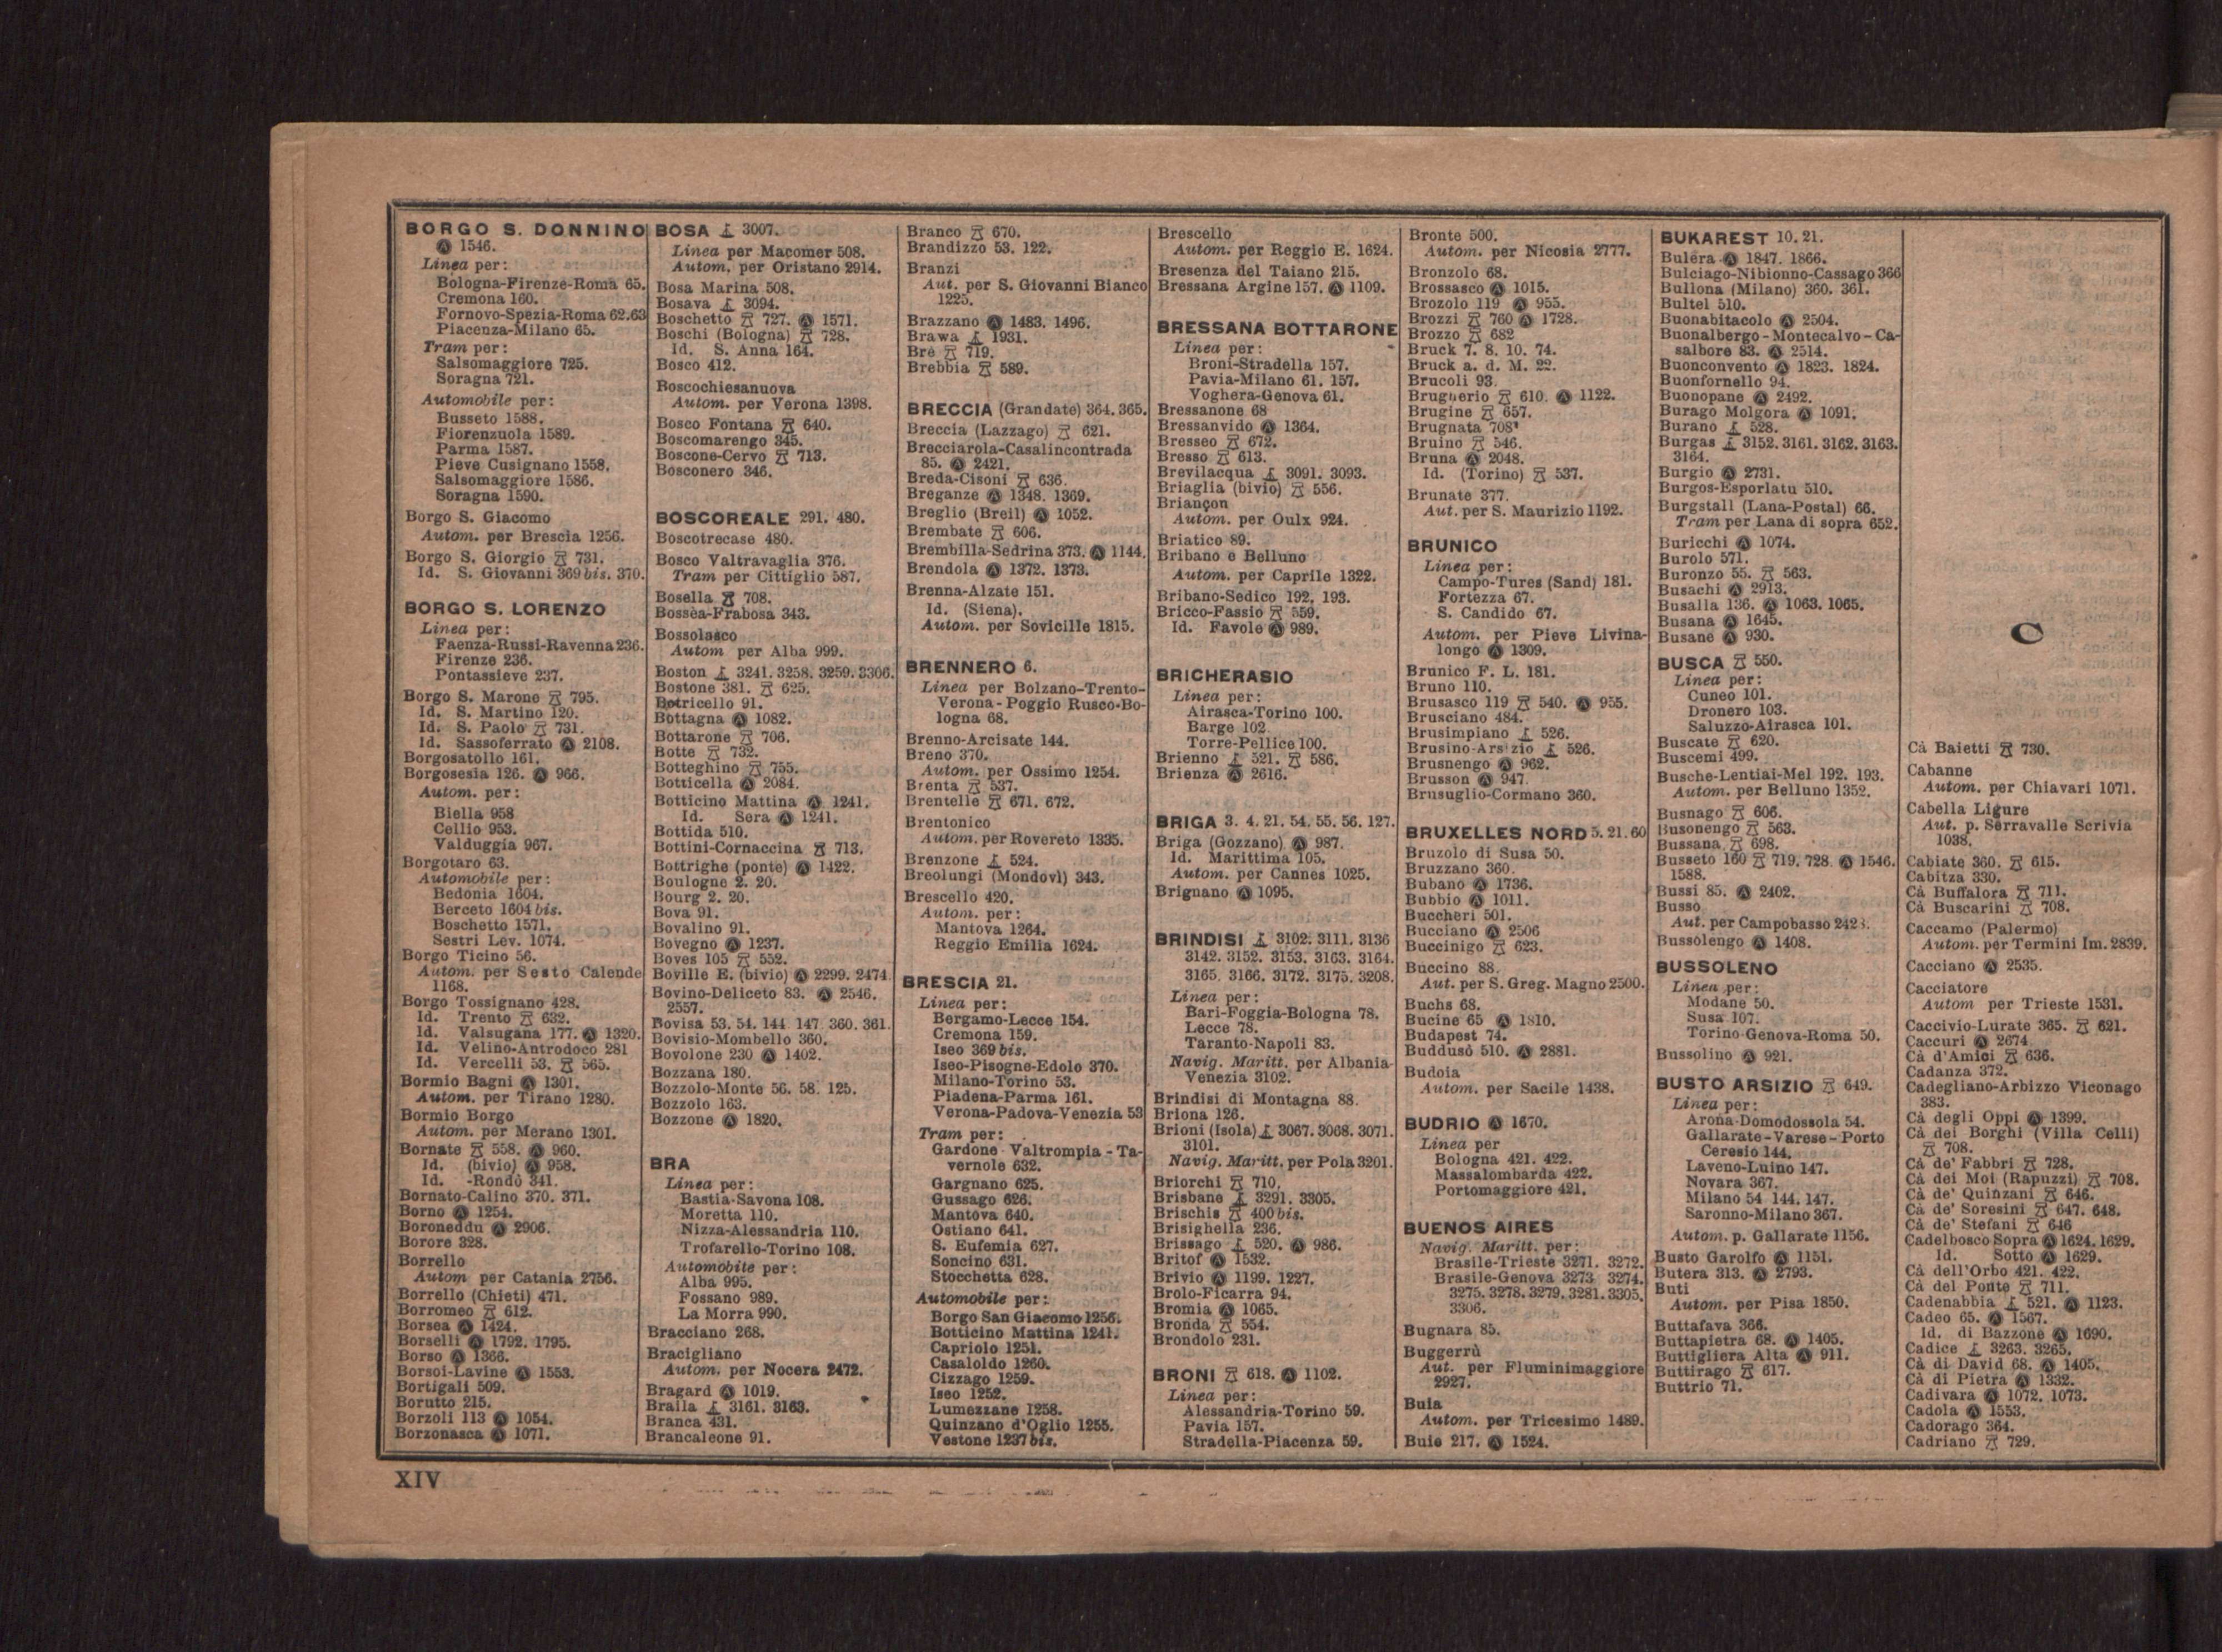 BORGO S. DONNINO
Ⓐ 1546.
Linea per:
Bologna-Firenze-Roma 65.
Cremona 160.
Fornovo-Spezia-Roma 62.63
Piacenza-Milano 65.
Tram per:
Salsomaggiore 725.
Soragna 721.
Automobile per:
Busseto 1588.
Fiorenzuola 1589.
Parma 1587.
Pieve Cusignano 1558.
Salsomaggiore 1586.
Soragna 1590.
Borgo S. Giacomo
Autom. per Brescia 1256.
Borgo S. Giorgio 731.
Id. S. Giovanni 369 bis. 370.
BORGO S. LORENZO
Linea per:
Faenza-Russi-Ravenna 236.
Firenze 236.
Pontassieve 237.
Borgo S. Marone 795.
Id. S. Martino 120.
Id. S. Paolo 731.
Id. Sassoferrato Ⓐ 2108.
Borgosatollo 161.
Borgosesia 126. Ⓐ 966.
Autom. per:
Biella 958
Cellio 953.
Valduggia 967.
Borgotaro 63.
Automobile per:
Bedonia 1604.
Berceto 1604 bis.
Boschetto 1571.
Sestri Lev. 1074.
Borgo Ticino 56.
Autom. per Sesto Calende
1168.
Borgo Tossignano 428.
Id. Trento 632.
Id. Valsugana 177. Ⓐ 1320.
Id. Velino-Antrodoco 281
Id. Vercelli 53. 565.
Bormio Bagni Ⓐ 1301.
Autom. per Tirano 1280.
Bormio Borgo
Autom. per Merano 1301.
Bornate 558. Ⓐ 960.
Id. (bivio) Ⓐ 958.
Id. -Rondò 341.
Bornato-Calino 370. 371.
Borno Ⓐ 1254.
Boroneddu Ⓐ 2906.
Borore 328.
Borrello
Autom per Catania 2756.
Borrello (Chieti) 471.
Borromeo 612.
Borsea Ⓐ 1424.
Borselli Ⓐ 1792. 1795.
Borso Ⓐ 1366.
Borsoi-Lavine Ⓐ 1553.
Bortigali 509.
Borutto 215.
Borzoli 113 Ⓐ 1054.
Borzonasca Ⓐ 1071.
BOSA 3007.
Linea per Macomer 508.
Autom. per Oristano 2914.
Bosa Marina 508.
Bosava 3094.
Boschetto 727. Ⓐ 1571.
Boschi (Bologna) 728.
Id. S. Anna 164.
Bosco 412.
Boscochiesanuova
Autom. per Verona 1398.
Bosco Fontana 640.
Boscomarengo 345.
Boscone-Cervo 713.
Bosconero 346.
BOSCOREALE 291. 480.
Boscotrecase 480.
Bosco Valtravaglia 376.
Tram per Cittiglio 587.
Bosella 708.
Bossèa-Frabosa 343.
Bossolasco
Autom per Alba 999.
Boston 3241. 3258. 3259. 3306.
Bostone 381. 625.
Botricello 91.
Bottagna Ⓐ 1082.
Bottarone 706.
Botte 732.
Botteghino 755.
Botticella Ⓐ 2084.
Botticino Mattina Ⓐ 1241.
Id. Sera Ⓐ 1241.
Bottida 510.
Bottini-Cornaccina 713.
Bottrighe (ponte) Ⓐ 1422.
Boulogne 2. 20.
Bourg 2. 20.
Bova 91.
Bovalino 91.
Bovegno Ⓐ 1237.
Boves 105 552.
Boville E. (bivio) Ⓐ 2299. 2474.
Bovino-Deliceto 83. Ⓐ 2546.
2557.
Bovisa 53. 54. 144. 147. 360. 361.
Bovisio-Mombello 360.
Bovolone 230 Ⓐ 1402.
Bozzana 180.
Bozzolo-Monte 56. 58. 125.
Bozzolo 163.
Bozzone Ⓐ 1820.
BRA
Linea per:
Bastia-Savona 108.
Moretta 110.
Nizza-Alessandria 110.
Trofarello-Torino 108.
Automobile per:
Alba 995.
Fossano 989.
La Morra 990.
Bracciano 268.
Bracigliano
Autom. per Nocera 2472.
Bragard Ⓐ 1019.
Braila 3161. 3163.
Branca 431.
Brancaleone 91.
Branco 670.
Brandizzo 53. 122.
Branzi
Aut. per S. Giovanni Bianco
1225.
Brazzano Ⓐ 1483. 1496.
Brawa 1931.
Bré 719.
Brebbia 589.
BRECCIA (Grandate) 364. 365.
Breccia (Lazzago) 621.
Brecciarola-Casalincontrada
85. Ⓐ 2421.
Breda-Cisoni 636.
Breganze Ⓐ 1348. 1369.
Breglio (Breil) Ⓐ 1052.
Brembate 606.
Brembilla-Sedrina 373. Ⓐ 1144.
Brendola Ⓐ 1372. 1373.
Brenna-Alzate 151.
Id. (Siena).
Autom. per Sovicille 1815.
BRENNERO 6.
Linea per Bolzano-Trento-
Verona-Poggio Rusco-Bo-
logna 68.
Brenno-Arcisate 144.
Breno 370.
Autom. per Ossimo 1254.
Brenta 537.
Brentelle 671. 672.
Brentonico
Autom. per Rovereto 1335.
Brenzone 524.
Breolungi (Mondovì) 343.
Brescello 420.
Autom. per:
Mantova 1264.
Reggio Emilia 1624.
BRESCIA 21.
Linea per:
Bergamo-Lecce 154.
Cremona 159.
Iseo 369 bis.
Iseo-Pisogne-Edolo 370.
Milano-Torino 53.
Piadena-Parma 161.
Verona-Padova-Venezia 53
Tram per:
Gardone Valtrompia-Ta-
vernole 632.
Gargnano 625.
Gussago 626.
Mantova 640.
Ostiano 641.
S. Eufemia 627.
Soncino 631.
Stocchetta 628.
Automobile per:
Borgo San Giacomo 1256.
Botticino Mattina 1241.
Capriolo 1251.
Casaloldo 1260.
Cizzago 1259.
Iseo 1252.
Lumezzane 1258.
Quinzano d'Oglio 1255.
Vestone 1237 bis.
Brescello
Autom. per Reggio E. 1624.
Bresenza del Taiano 215.
Bressana Argine 157. Ⓐ 1109.
BRESSANA BOTTARONE
Linea per:
Broni-Stradella 157.
Pavia-Milano 61. 157.
Voghera-Genova 61.
Bressanone 68
Bressanvido Ⓐ 1364.
Bresseo 672.
Bresso 613.
Brevilacqua 3091. 3093.
Briaglia (bivio) 556.
Briançon
Autom. per Oulx 924.
Briatico 89.
Bribano e Belluno
Autom. per Caprile 1322.
Bribano-Sedico 192. 193.
Bricco-Fassio 559.
Id. Favole Ⓐ 989.
BRICHERASIO
Linea per:
Airasca-Torino 100.
Barge 102
Torre-Pellice 100.
Brienno 521. 586.
Brienza Ⓐ 2616.
BRIGA 3. 4. 21. 54. 55. 56. 127.
Briga (Gozzano) Ⓐ 987.
Id. Marittima 105.
Autom. per Cannes 1025.
Brignano Ⓐ 1095.
BRINDISI 3102. 3111. 3136
3142. 3152. 3153. 3163. 3164.
3165. 3166. 3172. 3175. 3208.
Linea per:
Bari-Foggia-Bologna 78.
Lecce 78.
Taranto-Napoli 83.
Navig. Maritt. per Albania-
Venezia 3102.
Brindisi di Montagna 88.
Briona 126.
Brioni (Isola) 3067. 3068. 3071.
3101.
Navig. Maritt. per Pola 3201.
Briorchi 710.
Brisbane 3291. 3305.
Brischis 400 bis.
Brisighella 236.
Brissago 520. Ⓐ 986.
Britof Ⓐ 1532.
Brivio Ⓐ 1199. 1227.
Brolo-Ficarra 94.
Bromia Ⓐ 1065.
Bronda 554.
Brondolo 231.
BRONI 618. Ⓐ 1102.
Linea per:
Alessandria-Torino 59.
Pavia 157.
Stradella-Piacenza 59.
Bronte 500.
Autom. per Nicosia 2777.
Bronzolo 68.
Brossasco Ⓐ 1015.
Brozolo 119 Ⓐ 955.
Brozzi 760 Ⓐ 1728.
Brozzo 682
Bruck 7. 8. 10. 74.
Bruck a. d. M. 22.
Brucoli 93.
Brugherio 610. Ⓐ 1122.
Brugine 657.
Brugnata 708
Bruino 546.
Bruna Ⓐ 2048.
Id. (Torino) 537.
Brunate 377.
Aut. per S. Maurizio 1192.
BRUNICO
Linea per:
Campo-Tures (Sand) 181.
Fortezza 67.
S. Candido 67.
Autom. per Pieve Livina-
longo Ⓐ 1309.
Brunico F. L. 181.
Bruno 110.
Brusasco 119 540. Ⓐ 955.
Brusciano 484.
Brusimpiano 526.
Brusino-Arsizio 526.
Brusnengo Ⓐ 962.
Brusson Ⓐ 947.
Brusuglio-Cormano 360.
BRUXELLES NORD 5. 21. 60
Bruzolo di Susa 50.
Bruzzano 360.
Bubano Ⓐ 1736.
Bubbio Ⓐ 1011.
Buccheri 501.
Bucciano Ⓐ 2506
Buccinigo 623.
Buccino 88.
Aut. per S. Greg. Magno 2500.
Buchs 68.
Bucine 65 Ⓐ 1810.
Budapest 74.
Buddusò 510. Ⓐ 2881.
Budoia
Autom. per Sacile 1438.
BUDRIO Ⓐ 1670.
Linea per
Bologna 421. 422.
Massalombarda 422.
Portomaggiore 421.
BUENOS AIRES
Navig. Maritt. per:
Brasile-Trieste 3271. 3272.
Brasile-Genova 3273. 3274.
3275. 3278. 3279. 3281. 3305.
3306.
Bugnara 85.
Buggerrù
Aut. per Fluminimaggiore
2927.
Buia
Autom. per Tricesimo 1489.
Buie 217. Ⓐ 1524.
BUKAREST 10. 21.
Bulera Ⓐ 1847. 1866.
Bulciago-Nibionno-Cassago 366
Bullona (Milano) 360. 361.
Bultel 510.
Buonabitacolo Ⓐ 2504.
Buonalbergo-Montecalvo-Ca-
salbore 83. Ⓐ 2514.
Buonconvento Ⓐ 1823. 1824.
Buonfornello 94.
Buonopane Ⓐ 2492.
Burago Molgora Ⓐ 1091.
Burano 528.
Burgas 3152. 3161. 3162. 3163.
3164.
Burgio Ⓐ 2731.
Burgos-Esporlatu 510.
Burgstall (Lana-Postal) 66.
Tram per Lana di sopra 652.
Buricchi Ⓐ 1074.
Burolo 571.
Buronzo 55. 563.
Busachi Ⓐ 2913.
Busalla 136. Ⓐ 1063. 1065.
Busana Ⓐ 1645.
Busane Ⓐ 930.
BUSCA 550.
Linea per:
Cuneo 101.
Dronero 103.
Saluzzo-Airasca 101.
Buscate 620.
Buscemi 499.
Busche-Lentiai-Mel 192. 193.
Autom. per Belluno 1352.
Busnago 606.
Busonengo 563.
Bussana 698.
Busseto 160 719. 728. Ⓐ 1546.
1588.
Bussi 85. Ⓐ 2402.
Busso
Aut. per Campobasso 2423.
Bussolengo Ⓐ 1408.
BUSSOLENO
Linea per:
Modane 50.
Susa 107.
Torino-Genova-Roma 50.
Bussolino Ⓐ 921.
BUSTO ARSIZIO 649.
Linea per:
Arona-Domodossola 54.
Gallarate-Varese-Porto
Ceresio 144.
Laveno-Luino 147.
Novara 367.
Milano 54 144. 147.
Saronno-Milano 367.
Autom. p. Gallarate 1156.
Busto Garolfo Ⓐ 1151.
Butera 313. Ⓐ 2793.
Buti
Autom. per Pisa 1850.
Buttafava 366.
Buttapietra 68. Ⓐ 1405.
Buttigliera Alta Ⓐ 911.
Buttirago 617.
Buttrio 71.
C
Cà Baietti 730.
Cabanne
Autom. per Chiavari 1071.
Cabella Ligure
Aut. p. Serravalle Scrivia
1038.
Cabiate 360. 615.
Cabitza 330.
Cà Buffalora 711.
Cà Buscarini 708.
Caccamo (Palermo)
Autom. per Termini Im. 2839.
Cacciano Ⓐ 2535.
Cacciatore
Autom per Trieste 1531.
Caccivio-Lurate 365. 621.
Caccuri Ⓐ 2674
Cà d'Amici 636.
Cadanza 372.
Cadegliano-Arbizzo Viconago
383.
Cà degli Oppi Ⓐ 1399.
Cà dei Borghi (Villa Celli)
708.
Cà de' Fabbri 728.
Cà dei Moi (Rapuzzi) 708.
Cà de' Quinzani 646.
Cà de' Soresini 647. 648.
Cà de' Stefani 646
Cadelbosco Sopra Ⓐ 1624. 1629.
Id. Sotto Ⓐ 1629.
Cà dell'Orbo 421. 422.
Cà del Ponte 711.
Cadenabbia 521. Ⓐ 1123.
Cadeo 65. Ⓐ 1567.
Id. di Bazzone Ⓐ 1690.
Cadice 3263. 3265.
Cà di David 68. Ⓐ 1405.
Cà di Pietra Ⓐ 1332.
Cadivara Ⓐ 1072. 1073.
Cadola Ⓐ 1553.
Cadorago 364.
Cadriano 729.
XIV